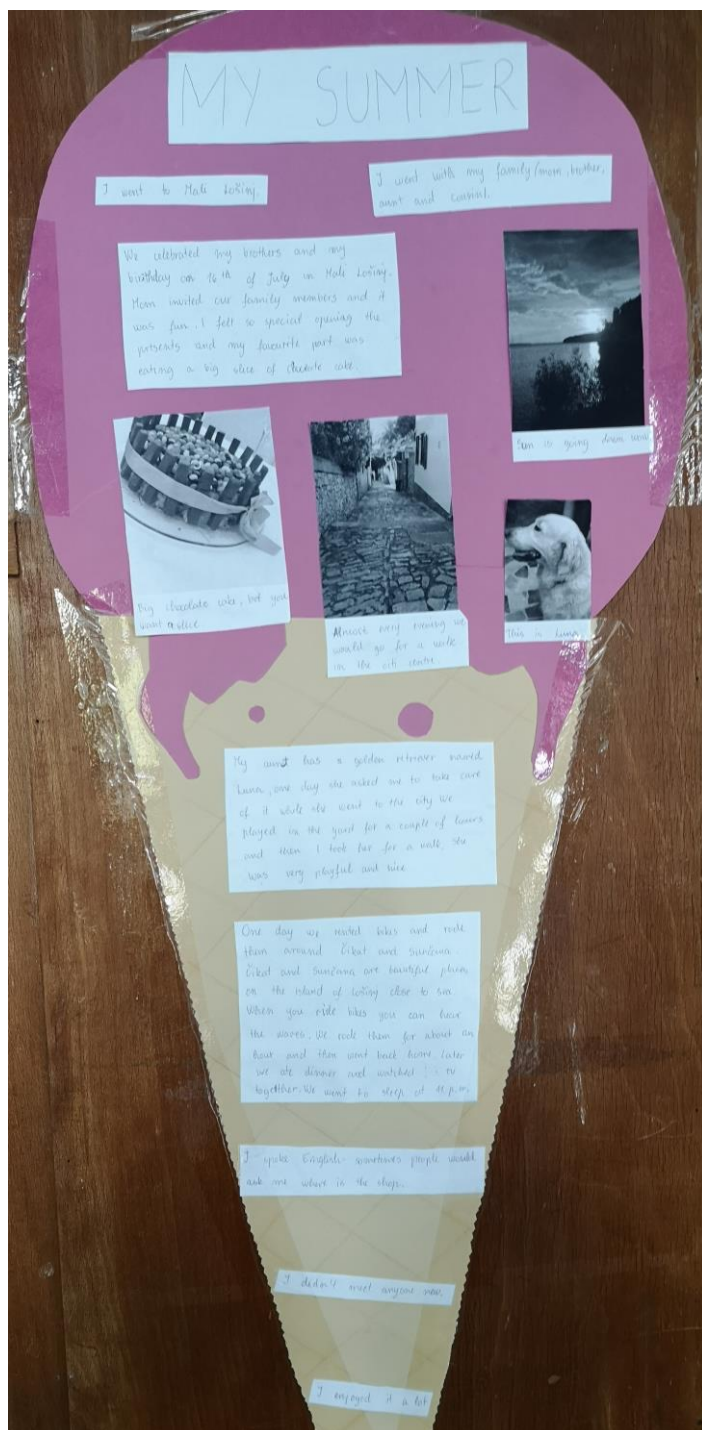 MY SUMMER
I went to Mali Lošinj.
I went with my family (mom, brother,
aunt and cousin).
We celebrated my brothers and my
birthday on 16th of July in Mali Lošinj.
Mom invited our family members and it
was fun. I felt so special opening the
presents and my favourite part was
eating a big slice of chocolate cake.
Sun is going down
Big chocolate cake, but you
want a slice
Almost every evening we
would go for a walk
in the citi centre.
This is Luna
My aunt has a golden retriever named
Luna, one day she asked me to take care
of it while she went to the city we
played in the yard for a couple of hours
and then I took her for a walk, she
was very playful and nice
One day we rented bikes and rode
them around Čikat and Sunčana.
Čikat and Sunčana are beautiful places
on the island of Lošinj close to sea.
When you ride bikes you can hear
the waves. We rode them for about an
hour and then went back home. Later
we ate dinner and watched tv
together. We went to sleep at p.m.
I spoke English - sometimes people would
ask me where is the shop.
I didn't meet anyone new.
I enjoyed it a lot